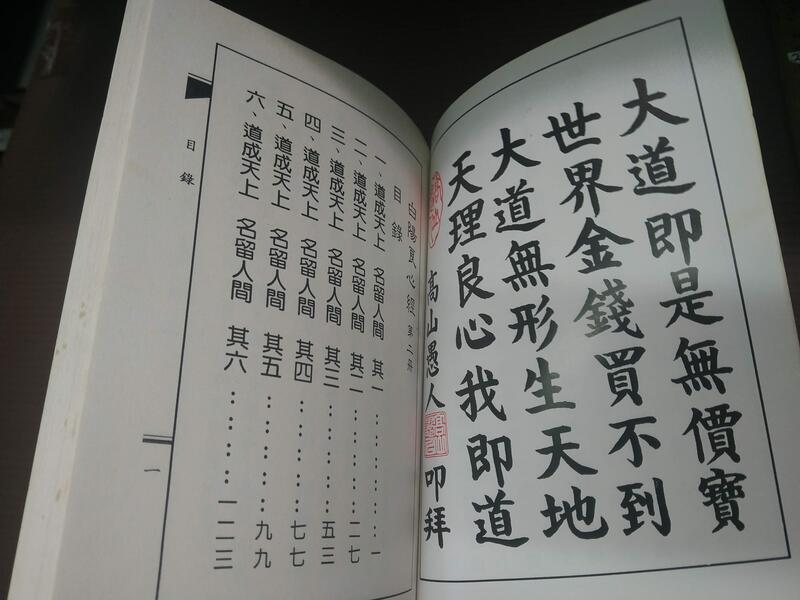 大道即是無價寶
世界金錢買不到
大道無形生天地
天理良心我即道
高山愚人 叩拜
白陽良心經 第二冊
目錄
一、道成天上 名留人間 其一…………一
二、道成天上 名留人間 其二…………二七
三、道成天上 名留人間 其三…………五三
四、道成天上 名留人間 其四…………七七
五、道成天上 名留人間 其五…………九九
六、道成天上 名留人間 其六…………一二三
目錄
一